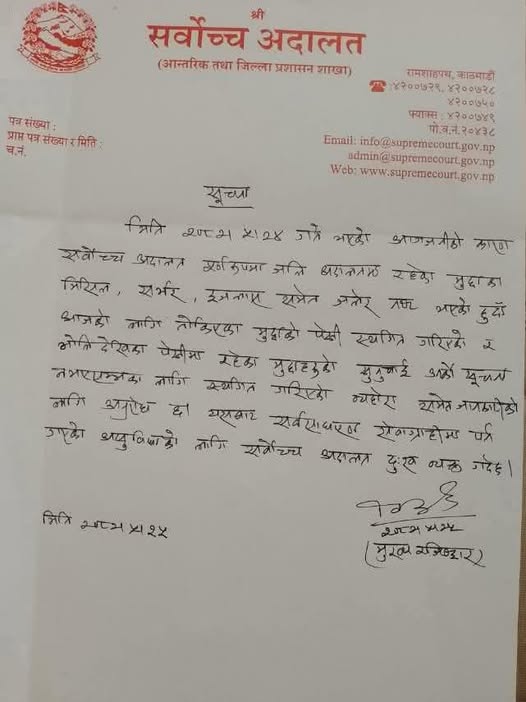 श्री
सर्वोच्च अदालत
(आन्तरिक तथा जिल्ला प्रशासन शाखा)
रामशाहपथ, काठमाडौं
☎:४२००७२९, ४२००७२८
४२००७५०
फ्याक्स : ४२००७४९
पो.व.नं.२०४३८
Email: info@supremecourt.gov.np
admin@supremecourt.gov.np
Web: www.supremecourt.gov.np
पत्र संख्या :
प्राप्त पत्र संख्या र मिति :
च.नं.
सूचना
मिति २०८२।५।२४ गते भएको आगजनीको कारण
सर्वोच्च अदालत पूर्णरूपमा जलि अदालतमा रहेका मुद्दाका
मिसिल, सर्भर, इजलास समेत जलेर नष्ट भएको हुदाँ
आजको लागि तोकिएका मुद्दाको पेशी स्थगित गरिएको र
भोलि देखिका पेशीमा रहेका मुद्दाहरुको सुनुवाई अर्को सूचना
नभएसम्मका लागि स्थगित गरिएको व्यहोरा समेत जानकारीको
लागि अनुरोध छ। यसबाट सर्वसाधारण सेवाग्राहीमा पर्न
गएको असुविधाको लागि सर्वोच्च अदालत दुःख व्यक्त गर्दछ।
२०८२।५।२५
(मुख्य रजिष्ट्रार)
मिति २०८२।५।२५